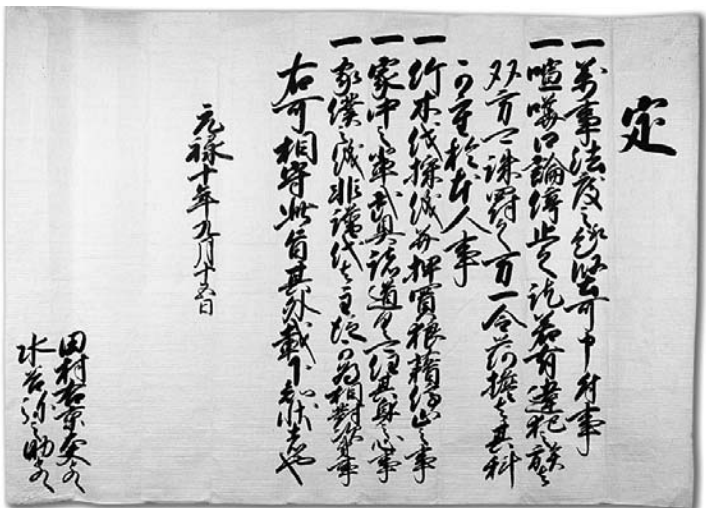 定
一萬事法度之趣堅可申付事
一喧嘩口論停止之訖若有違犯族者
双方可誅罰之万一令荷擔者其科
可重於本人事
一竹木伐採儀并押買狼藉停止之事
一家中之輩武具諸道具可任其身之心事
一家僕之儀非譜代者主従可為相對次第事
右可相守此旨其外載下知状者也
元禄十年九月十五日
田村右京
水谷弥之助